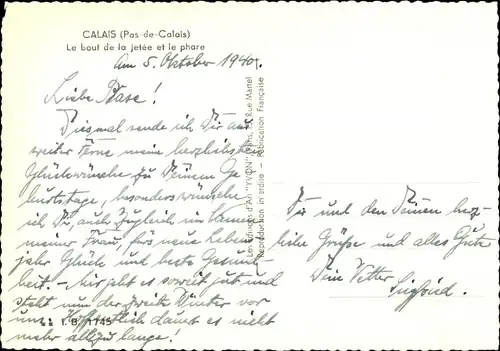 CALAIS (Pas-de-Calais)
Le bout de la jetée et le phare
Am 5. Oktober 1940.
Liebe Base!
Diesmal sende ich Dir aus
weiter Ferne meine herzlichsten
Glückwünsche zu Deinem Ge-
burtstage, besonders wünsche
ich Dir, auch zugleich im Namen
meiner Frau, fürs neue Lebens
jahr Glück und beste Gesund-
heit. - hier geht es soweit gut und
steht nun der zweite Winter vor
uns. Hoffentlich dauert es nicht
mehr allzu lange!
I. B. 1145
Les Editions d'Art "YVON" Paris, Rue Martel
Reproduction interdite - Fabrication Française
Dir und den Deinen herz-
liche Grüße und alles Gute
Dein Vetter
Siegfried.